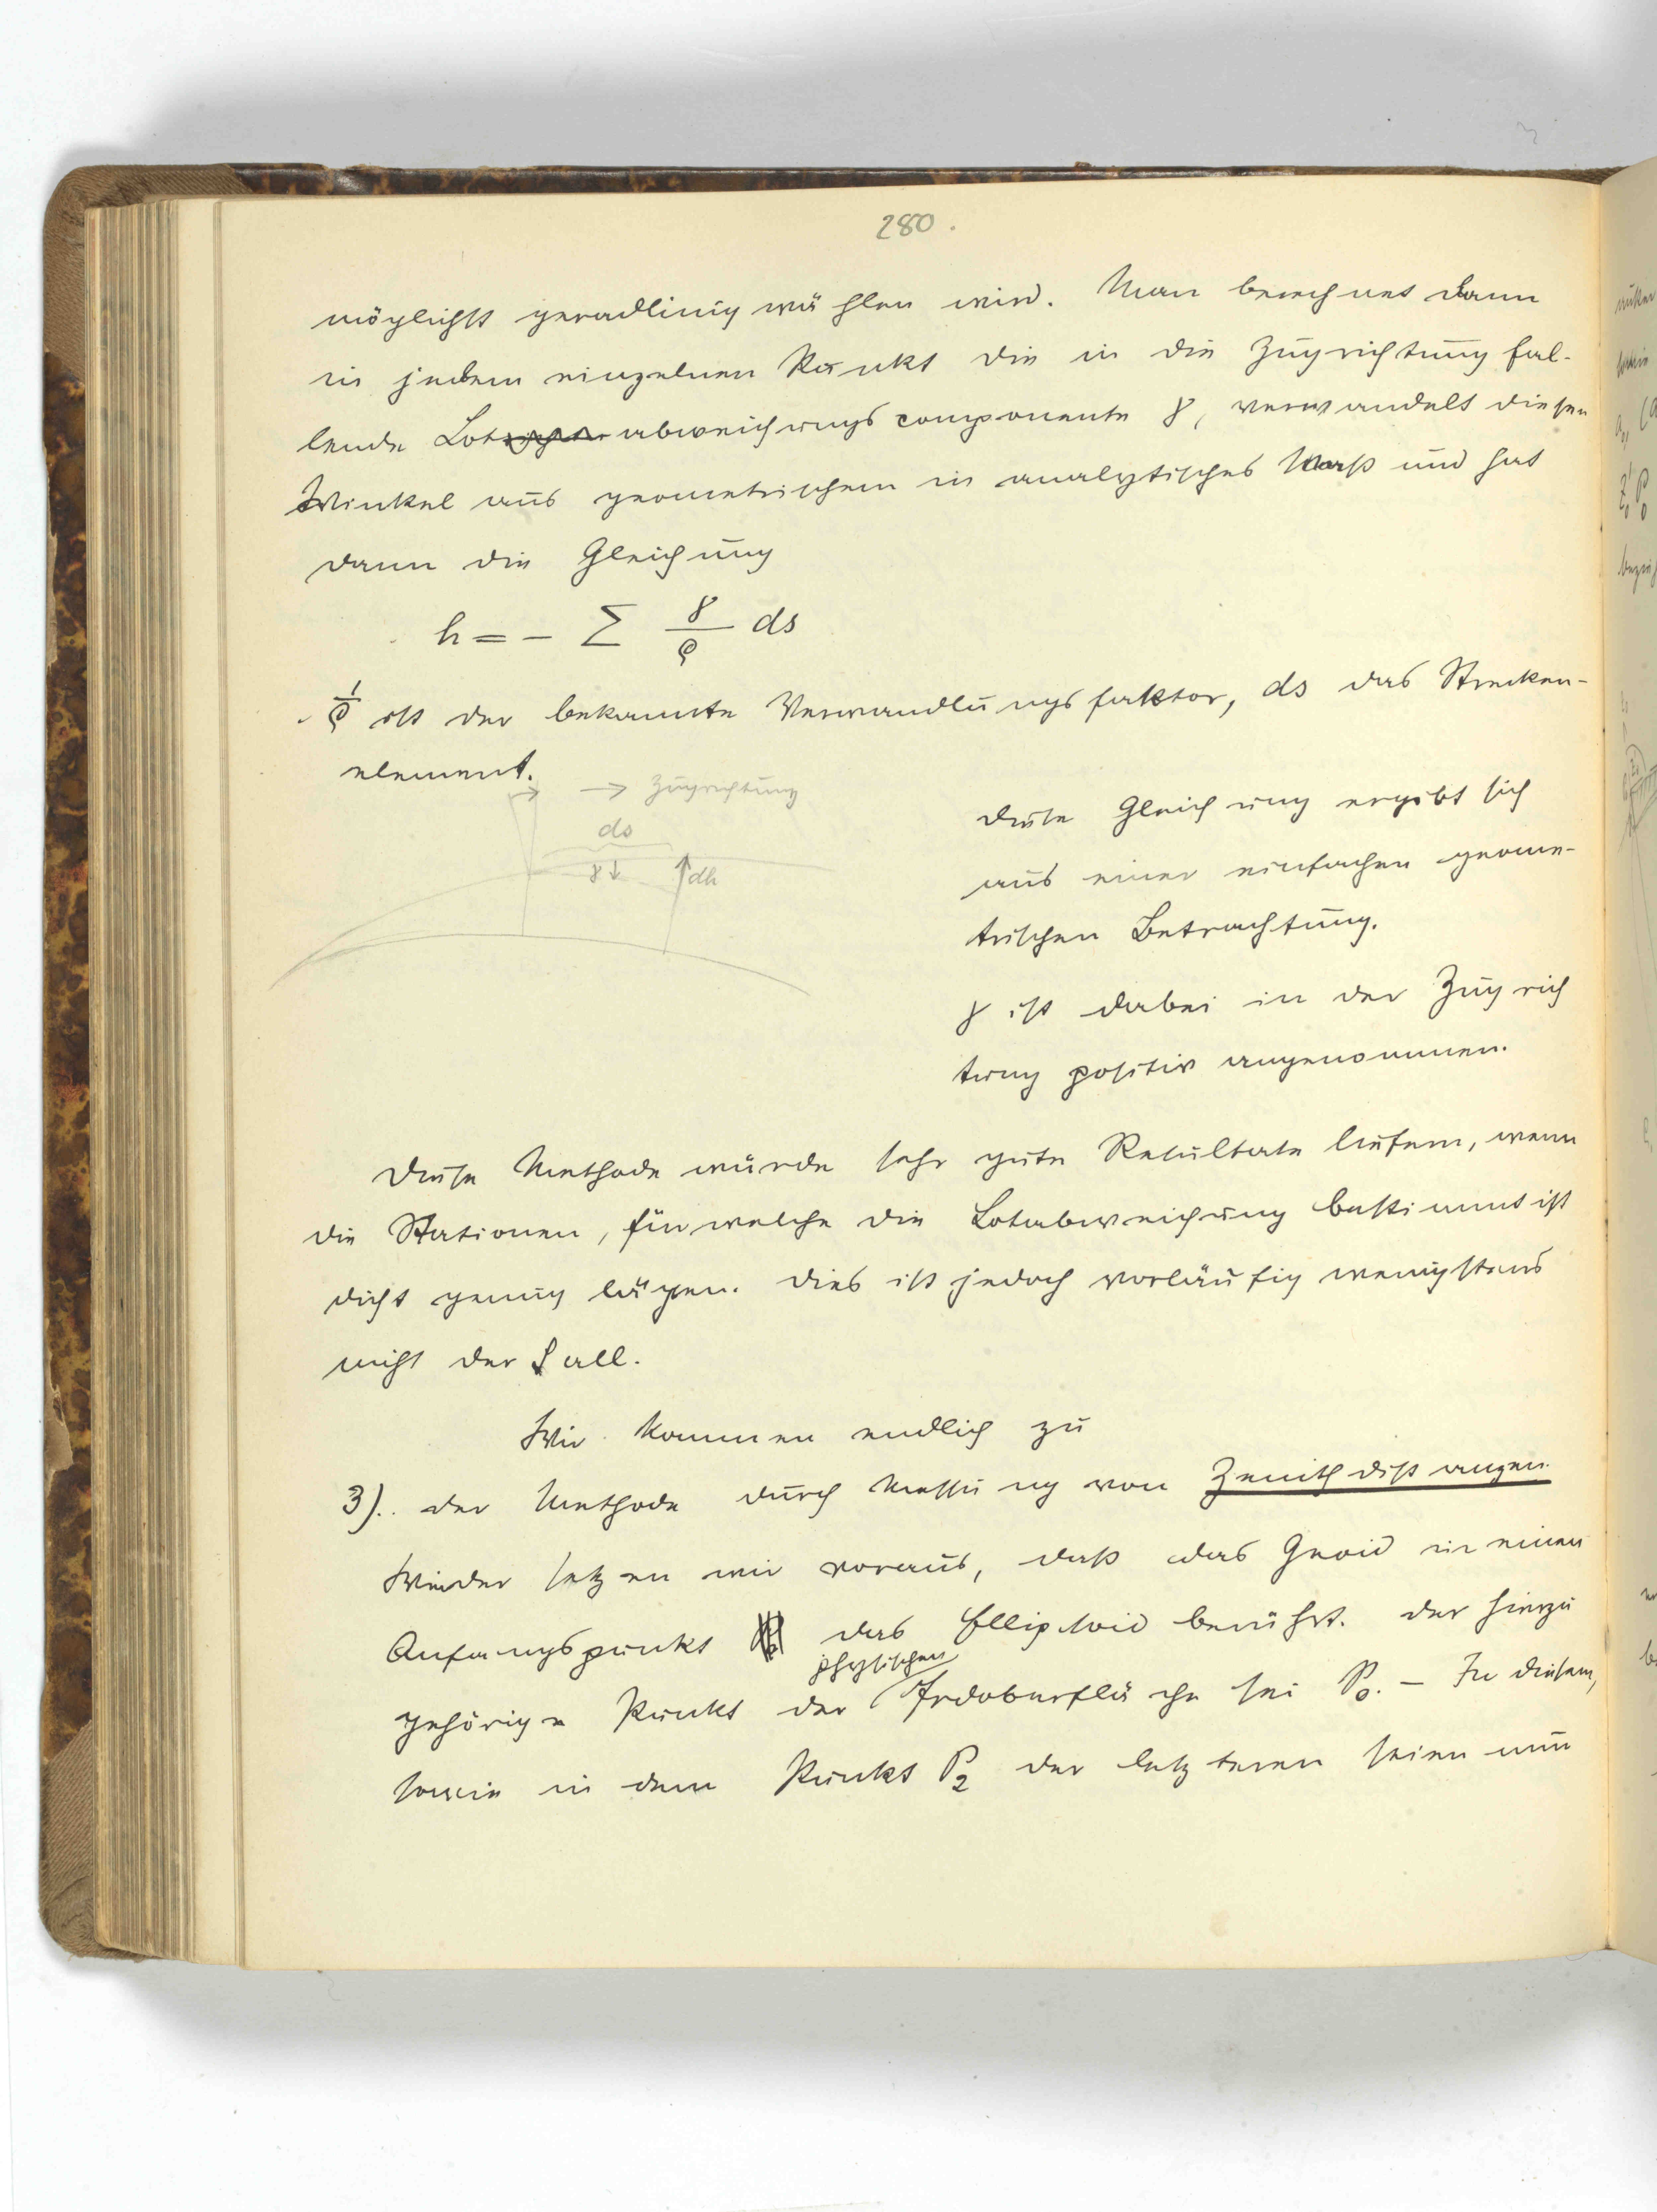 280.
möglichst geradlinig wählen wird. Man berechnet dann
in jedem einzelnen Punkt die in die Zugrichtung fal-
lende Lotabweichungscomponente γ, verwandelt diesen
Winkel aus geometrischem in analytisches Maß und hat
dann die Gleichung
h = - Σ γ/ϱ ds
1/ϱ ist der bekannte Verwandlungsfaktor, ds das Strecken-
element.
→ Zugrichtung
ds
γ↓ ↑dh
Diese Gleichung ergibt sich
aus einer einfachen geome-
trischen Betrachtung.
γ ist dabei in der Zugrich
tung positiv angenommen.
Diese Methode würde sehr gute Resultate liefern, wenn
die Stationen, für welche die Lotabweichung bestimmt ist
dicht genug lägen. Dies ist jedoch vorläufig wenigstens
nicht der Fall.
Wir kommen endlich zu
3).. der Methode durch Messung von Zenithdistanzen.
Wieder setzen wir voraus, daß das Geoid in einem
Anfangspunkt das Ellipsoid berührt. Der hierzu
physischen
gehörige Punkt der Erdoberfläche sei P₀. – In diesem,
sowie in dem Punkt P₂ der letzteren seien nun